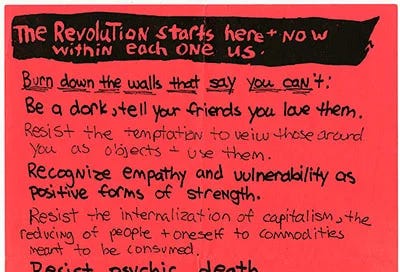 The Revolution starts here + now
within each one us.
Burn down the walls that say you can't:
Be a dork, tell your friends you love them.
Resist the temptation to veiw those around
you as objects + use them.
Recognize empathy and vulnerability as
positive forms of strength.
Resist the internalization of capitalism, the
reducing of people + oneself to commodities
meant to be consumed.
Resist psychic death